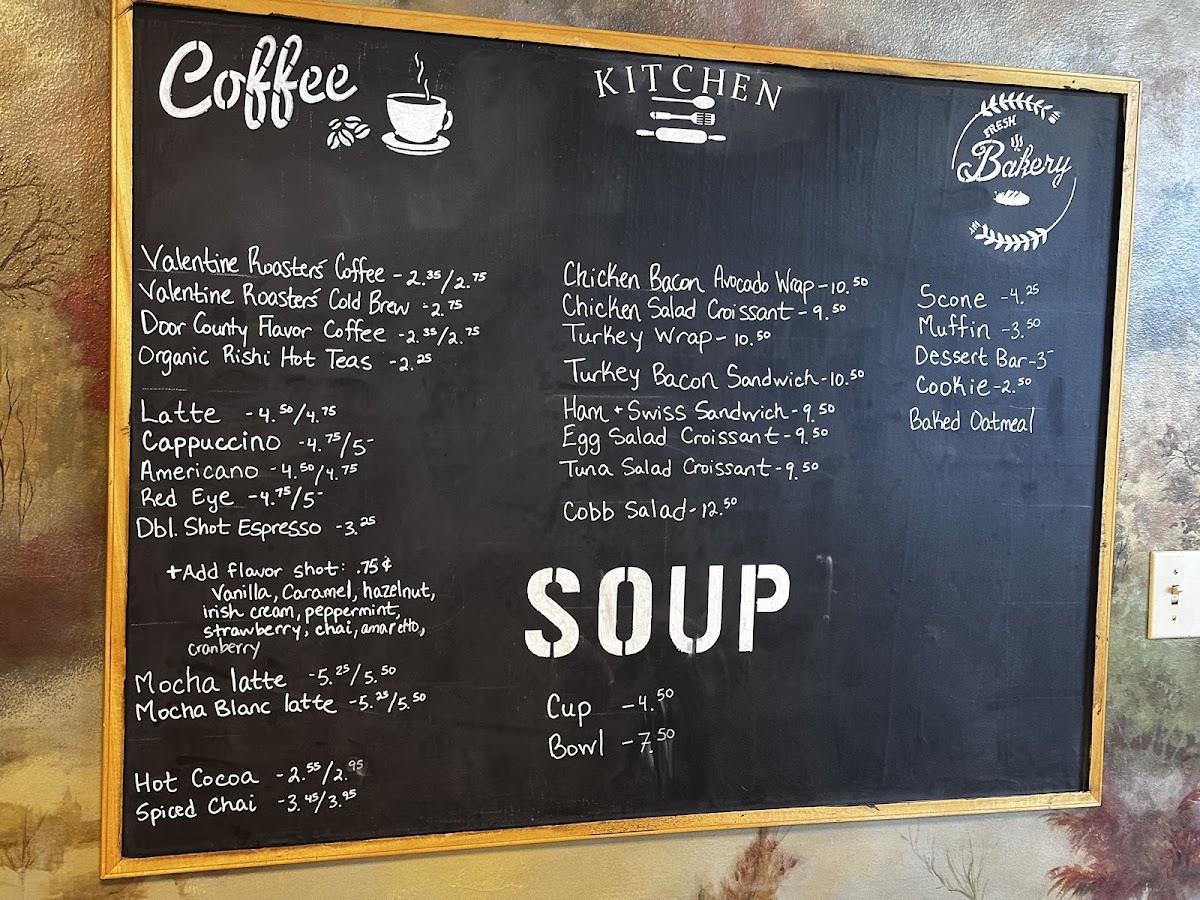 Coffee
Valentine Roasters' Coffee - 2.35/2.75
Valentine Roasters' Cold Brew - 2.75
Door County Flavor Coffee - 2.35/2.75
Organic Rishi Hot Teas - 2.25
Latte - 4.50/4.75
Cappuccino - 4.75/5-
Americano - 4.50/4.75
Red Eye - 4.75/5-
Dbl. Shot Espresso - 3.25
+Add flavor shot: .75¢
Vanilla, Caramel, hazelnut,
irish cream, peppermint,
strawberry, chai, amaretto,
cranberry
Mocha latte - 5.25/5.50
Mocha Blanc latte - 5.25/5.50
Hot Cocoa - 2.55/2.95
Spiced Chai - 3.45/3.95
KITCHEN
Chicken Bacon Avocado Wrap - 10.50
Chicken Salad Croissant - 9.50
Turkey Wrap - 10.50
Turkey Bacon Sandwich - 10.50
Ham + Swiss Sandwich - 9.50
Egg Salad Croissant - 9.50
Tuna Salad Croissant - 9.50
Cobb Salad - 12.50
SOUP
Cup - 4.50
Bowl - 7.50
FRESH
Bakery
Scone - 4.25
Muffin - 3.50
Dessert Bar - 3-
Cookie - 2.50
Baked Oatmeal